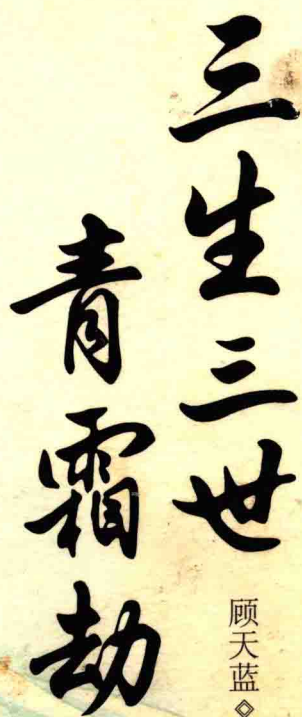 三生三世
青霜劫
顾天蓝◇